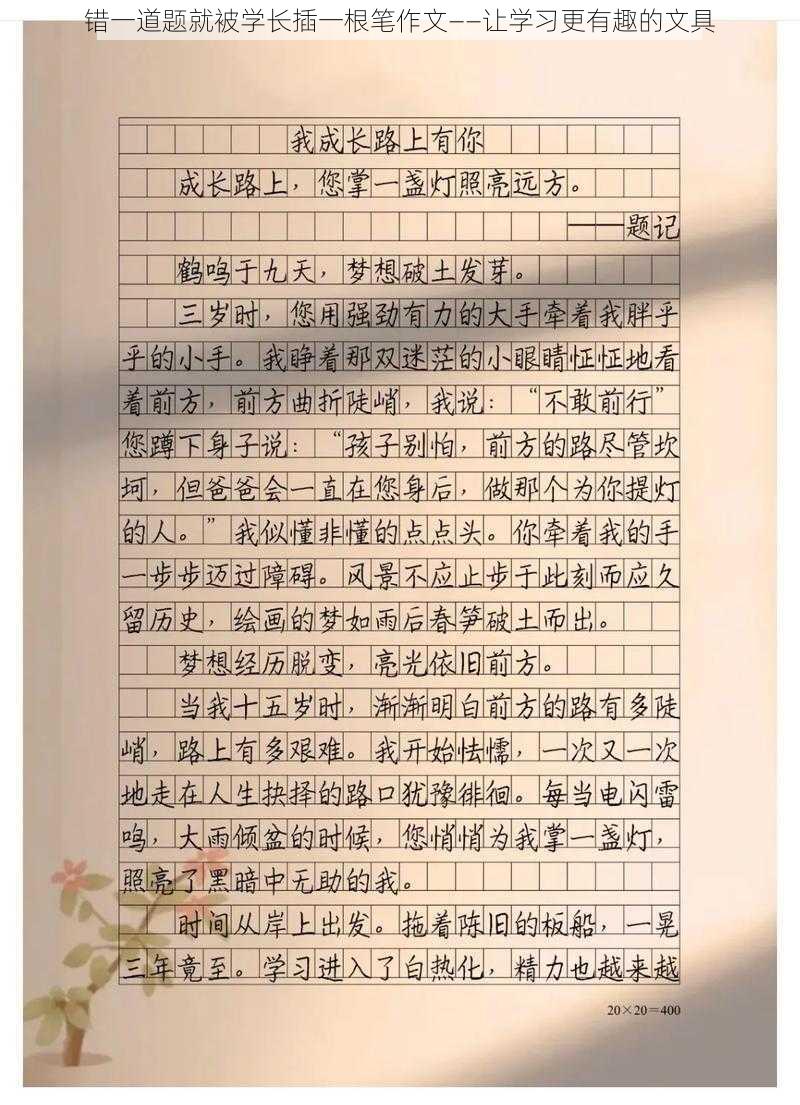 错一道题就被学长插一根笔作文——让学习更有趣的文具
我成长路上有你
成长路上，您掌一盏灯照亮远方。
——题记
鹤鸣于九天，梦想破土发芽。
三岁时，您用强劲有力的大手牵着我胖乎
乎的小手。我睁着那双迷茫的小眼睛怔怔地看
着前方，前方曲折陡峭，我说：“不敢前行”
您蹲下身子说：“孩子别怕，前方的路尽管坎
坷，但爸爸会一直在您身后，做那个为你提灯
的人。”我似懂非懂的点点头。你牵着我的手
一步步迈过障碍。风景不应止步于此刻而应久
留历史，绘画的梦如雨后春笋破土而出。
梦想经历脱变，亮光依旧前方。
当我十五岁时，渐渐明白前方的路有多陡
峭，路上有多艰难。我开始怯懦，一次又一次
地走在人生抉择的路口犹豫徘徊。每当电闪雷
鸣，大雨倾盆的时候，您悄悄为我掌一盏灯，
照亮了黑暗中无助的我。
时间从岸上出发。拖着陈旧的板船，一晃
三年竟至。学习进入了白热化，精力也越来越
20×20=400